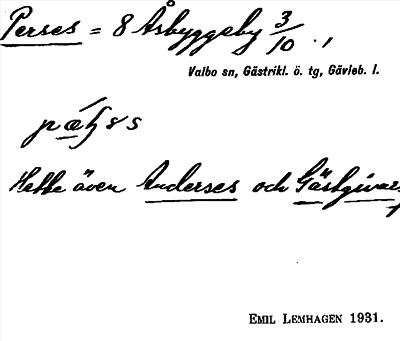 Perses = 8 Åsbyggeby 3/10 . ,
Valbo sn, Gästrikl. ö. tg, Gävleb. l.
Hette även Anderses och Gästgivars
EMIL LEMHAGEN 1931.